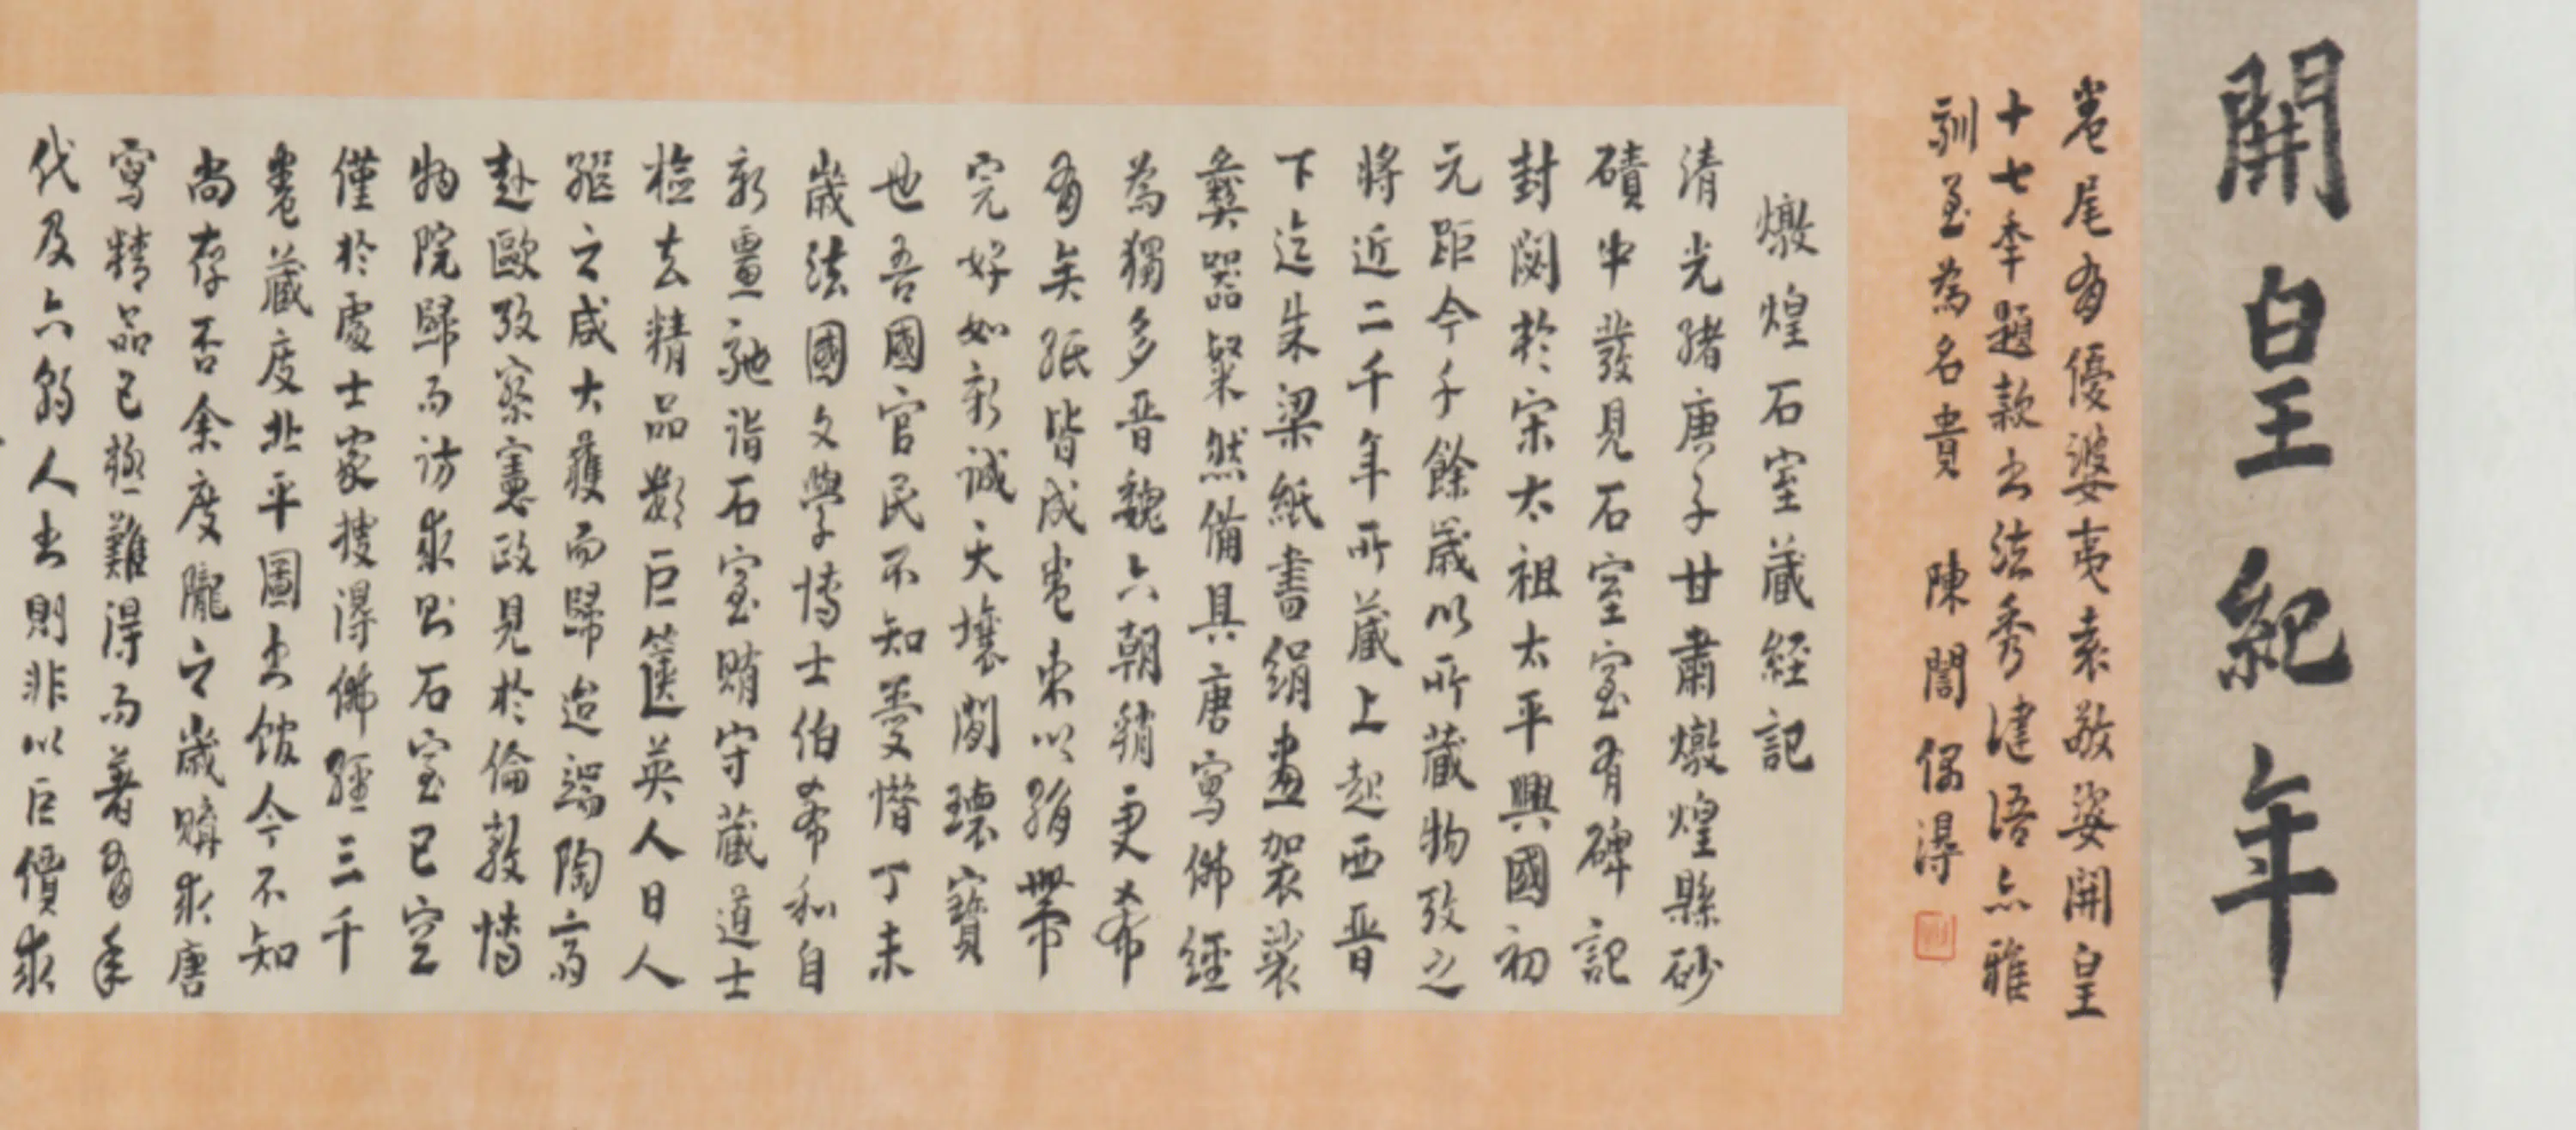 開皇紀年
卷尾有優婆夷袁敬姿開皇
十七季題款書法秀健語亦雅
馴至為名貴 陳誾偶得
燉煌石室藏経記
清光緒庚子甘肅燉煌縣砂
磧中發見石室室有碑記
封閟於宋太祖太平興國初
元距今千餘歲以所藏物攷之
將近二千年所藏上起西晉
下迄朱梁紙書絹畫袈裟
彝器粲然備具唐寫佛經
為獨多晉魏六朝稍更希
有矣紙皆成卷束以絹帶
完好如新誠天壤間瓌寶
也吾國官民不知愛惜丁未
歲法國文學博士伯希和自
新疆馳詣石室賄守藏道士
檢去精品數巨篋英人日人
繼之咸大獲而歸迨端陶齋
赴歐攷察憲政見於倫敦博
物院歸而訪求則石室已空
僅於處士家搜得佛經三千
卷藏庋北平圖書館今不知
尚存否余度隴之歲購求唐
寫精品已極難得而著有年
代及六朝人書則非以巨價求